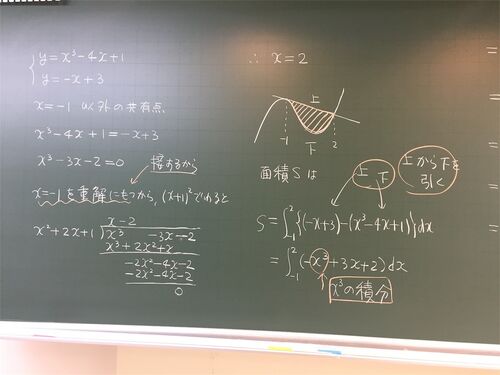 y=x³-4x+1
y=-x+3
x=-1 以外の共有点
x³-4x+1=-x+3
x³-3x-2=0
接するから
x=-1を重解にもつから, (x+1)²でわると
x-2
x²+2x+1)x³ -3x-2
x³+2x²+x
-2x²-4x-2
-2x²-4x-2
0
∴ x=2
上
-1
下
2
面積Sは
上から下を
引く
上 下
S=∫₋₁²{(-x+3)-(x³-4x+1)}dx
=∫₋₁²(-x³+3x+2)dx
x³の積分